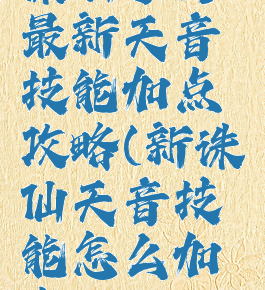 最新天音
技能加点
攻略(新诛
仙天音技
能怎么加